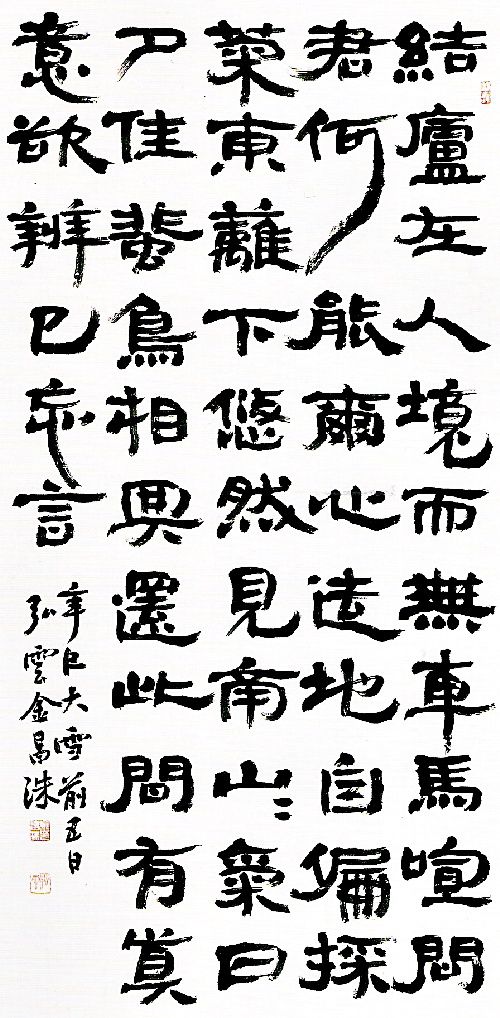 結廬在人境而無車馬喧問
君何能爾心遠地自偏採
菊東籬下悠然見南山〻氣日
夕佳蜚鳥相與還此間有真
意欲辨已忘言
辛巳大雪前五日
弘雲金昌洙